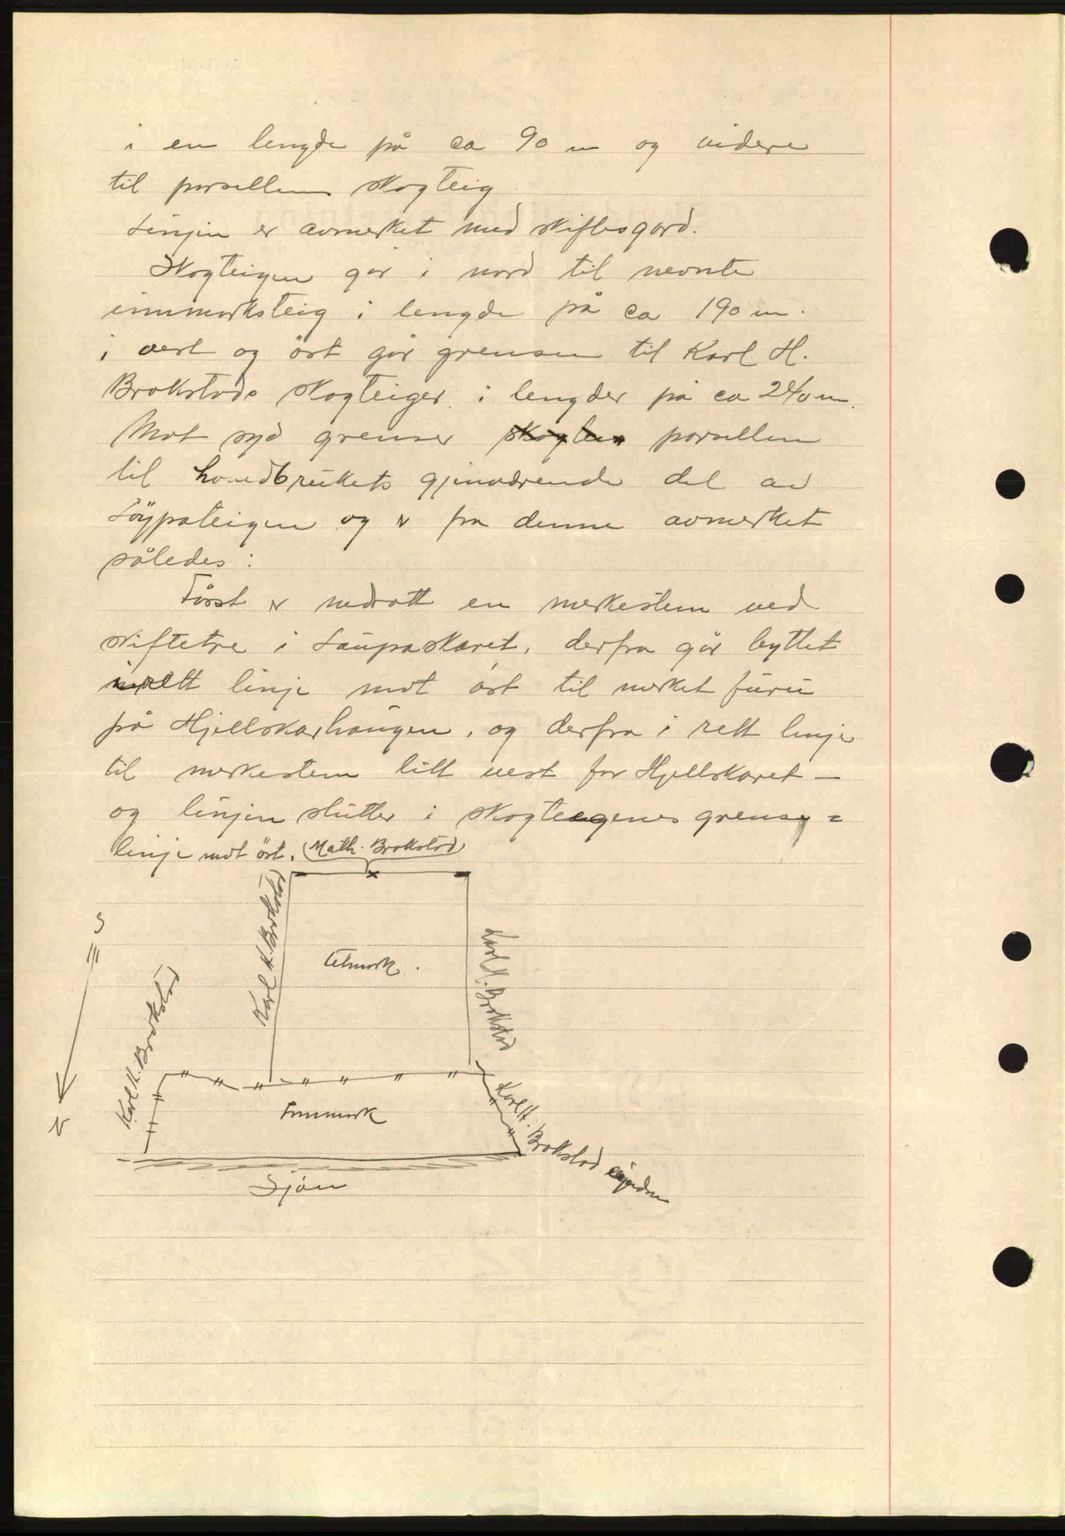 i en lengde på ca 90 m og videre
til parsellens skogteig.
Linjen er avmerket med skiftesgard.
Skogteigen går i nord til nevnte
innmarksteig i lengde på ca 190 m.
i vest og öst går grensen til Karl H.
Brokstads skogteiger i lengder på ca 240 m.
Mot syd grenser parsellen
til hovedbrukets gjenværende del av
Löypateigen og er fra denne avmerket
således:
Först er nedsatt en merkesten ved
skiftetre i Laupaskaret, derfra går byttet
i rett linje mot öst til merket furu
på Hjellskarhaugen, og derfra i rett linje
til merkesten litt vest for Hjellskaret –
og linjen slutter i skogteigenes grense=
linje mot öst.
Math. Brokstad
S
Karl H. Brokstad
Utmark.
Karl H. Brokstad
Karl H. Brokstad
N
Innmark
Karl H. Brokstad eiendom
Sjöen